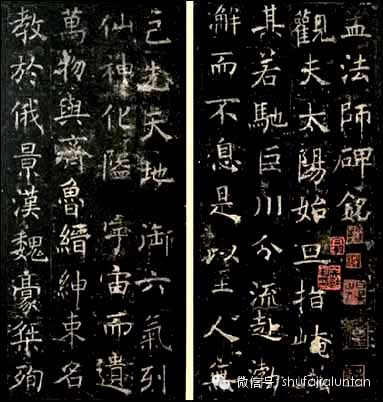 孟法師碑銘
觀夫太陽始旦指崦嵫
其若馳巨川分流赴渤
澥而不息是以至人無
己先天地 御六氣列
仙神化隘 宇宙而遺
萬物與齊魯縉紳束名
教於俄景漢魏豪桀殉
微信号: shufajialuntan